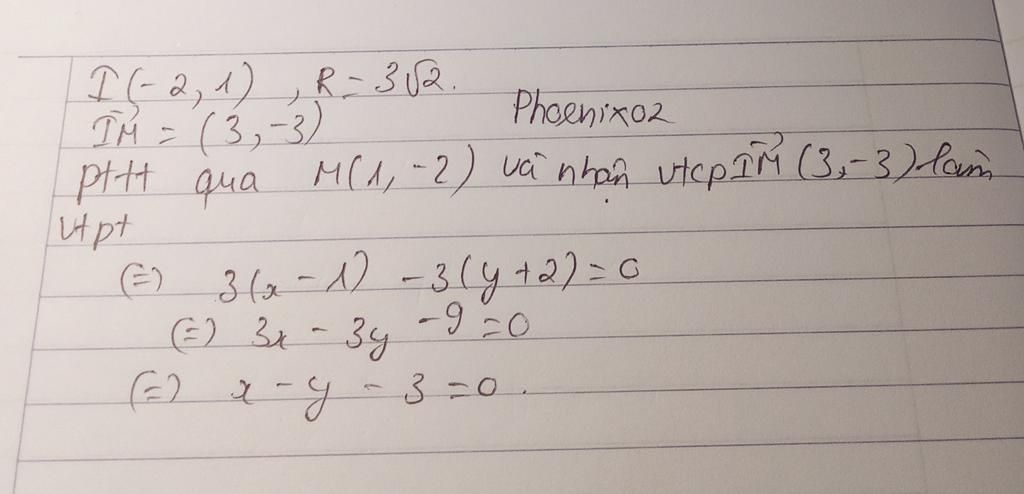 I(-2,1) , R = 3√2.
IM⃗ = (3,-3) Phoenix02
pttt qua M(1,-2) và nhận vtcp IM⃗ (3,-3) làm
vtpt
(=) 3(x - 1) - 3(y + 2) = 0
(=) 3x - 3y - 9 = 0
(=) x - y - 3 = 0.